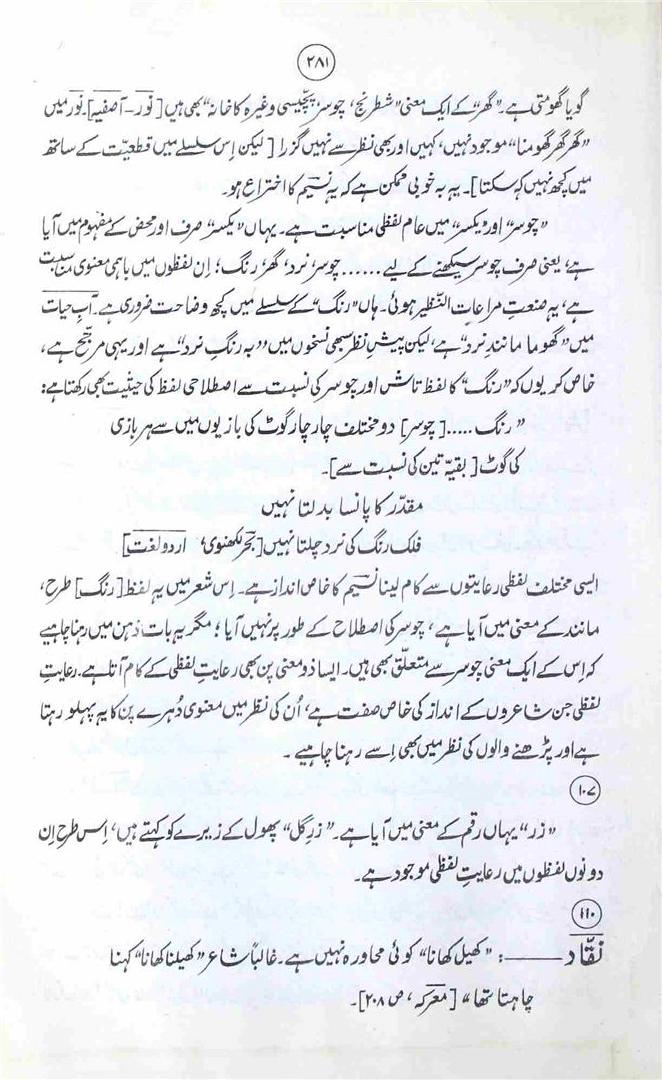 ۲۸۱
گویا گھومتی ہے۔ "گھر" کے ایک معنی "شطرنج، چوسر، پچیسی وغیرہ کا خانہ" بھی ہیں [نور - آصفیہ]۔ نور میں
"گھر گھر گھومنا" موجود نہیں، کہیں اور بھی نظر سے نہیں گزرا [لیکن اِس سلسلے میں قطعیت کے ساتھ
میں کچھ نہیں کہہ سکتا]۔ یہ بہ خوبی ممکن ہے کہ یہ نسیم کا اختراع ہو۔
"چوسر" اور "یکسر" میں عام لفظی مناسبت ہے۔ یہاں "یکسر" صرف اور محض کے مفہوم میں آیا
ہے، یعنی صرف چوسر سیکھنے کے لیے ...... چوسر، نرد، گھر، رنگ؛ اِن لفظوں میں باہمی معنوی مناسبت
ہے، یہ صنعتِ مراعات النّظیر ہوئی۔ ہاں "رنگ" کے سلسلے میں کچھ وضاحت ضروری ہے۔ آبِ حیات
میں "گھوما مانندِ نرد" ہے، لیکن پیشِ نظر سبھی نسخوں میں "بہ رنگِ نرد" ہے اور یہی مرجّح ہے،
خاص کر یوں کہ "رنگ" کا لفظ تاش اور چوسر کی نسبت سے اصطلاحی لفظ کی حیثیت بھی رکھتا ہے:
"رنگ ..... [چوسر] دو مختلف چار چار گوٹ کی بازیوں میں سے ہر بازی
کی گوٹ [بقیہ تین کی نسبت سے]۔
مقدّر کا پانسا بدلتا نہیں
فلک رنگ کی نرد چلتا نہیں [بحر لکھنوی، اردو لغت]
ایسی مختلف لفظی رعایتوں سے کام لینا نسیم کا خاص انداز ہے۔ اِس شعر میں یہ لفظ [رنگ] طرح،
مانند کے معنی میں آیا ہے، چوسر کی اصطلاح کے طور پر نہیں آیا؛ مگر یہ بات ذہن میں رہنا چاہیے
کہ اِس کے ایک معنی چوسر سے متعلّق بھی ہیں۔ ایسا ذو معنی پن بھی رعایتِ لفظی کے کام آتا ہے۔ رعایتِ
لفظی جن شاعروں کے انداز کی خاص صفت ہے، اُن کی نظر میں معنوی دُہرے پن کا یہ پہلو رہتا
ہے اور پڑھنے والوں کی نظر میں بھی اِسے رہنا چاہیے۔
۱۰۷
"زر" یہاں رقم کے معنی میں آیا ہے۔ "زرِ گل" پھول کے زیرے کو کہتے ہیں، اِس طرح اِن
دونوں لفظوں میں رعایتِ لفظی موجود ہے۔
۱۱۰
نقّاد ——: "کھیل کھانا" کوئی محاورہ نہیں ہے۔ غالباً شاعر "کھیلنا کھانا" کہنا
چاہتا تھا" [معرکہ، ص ۲۰۸]۔